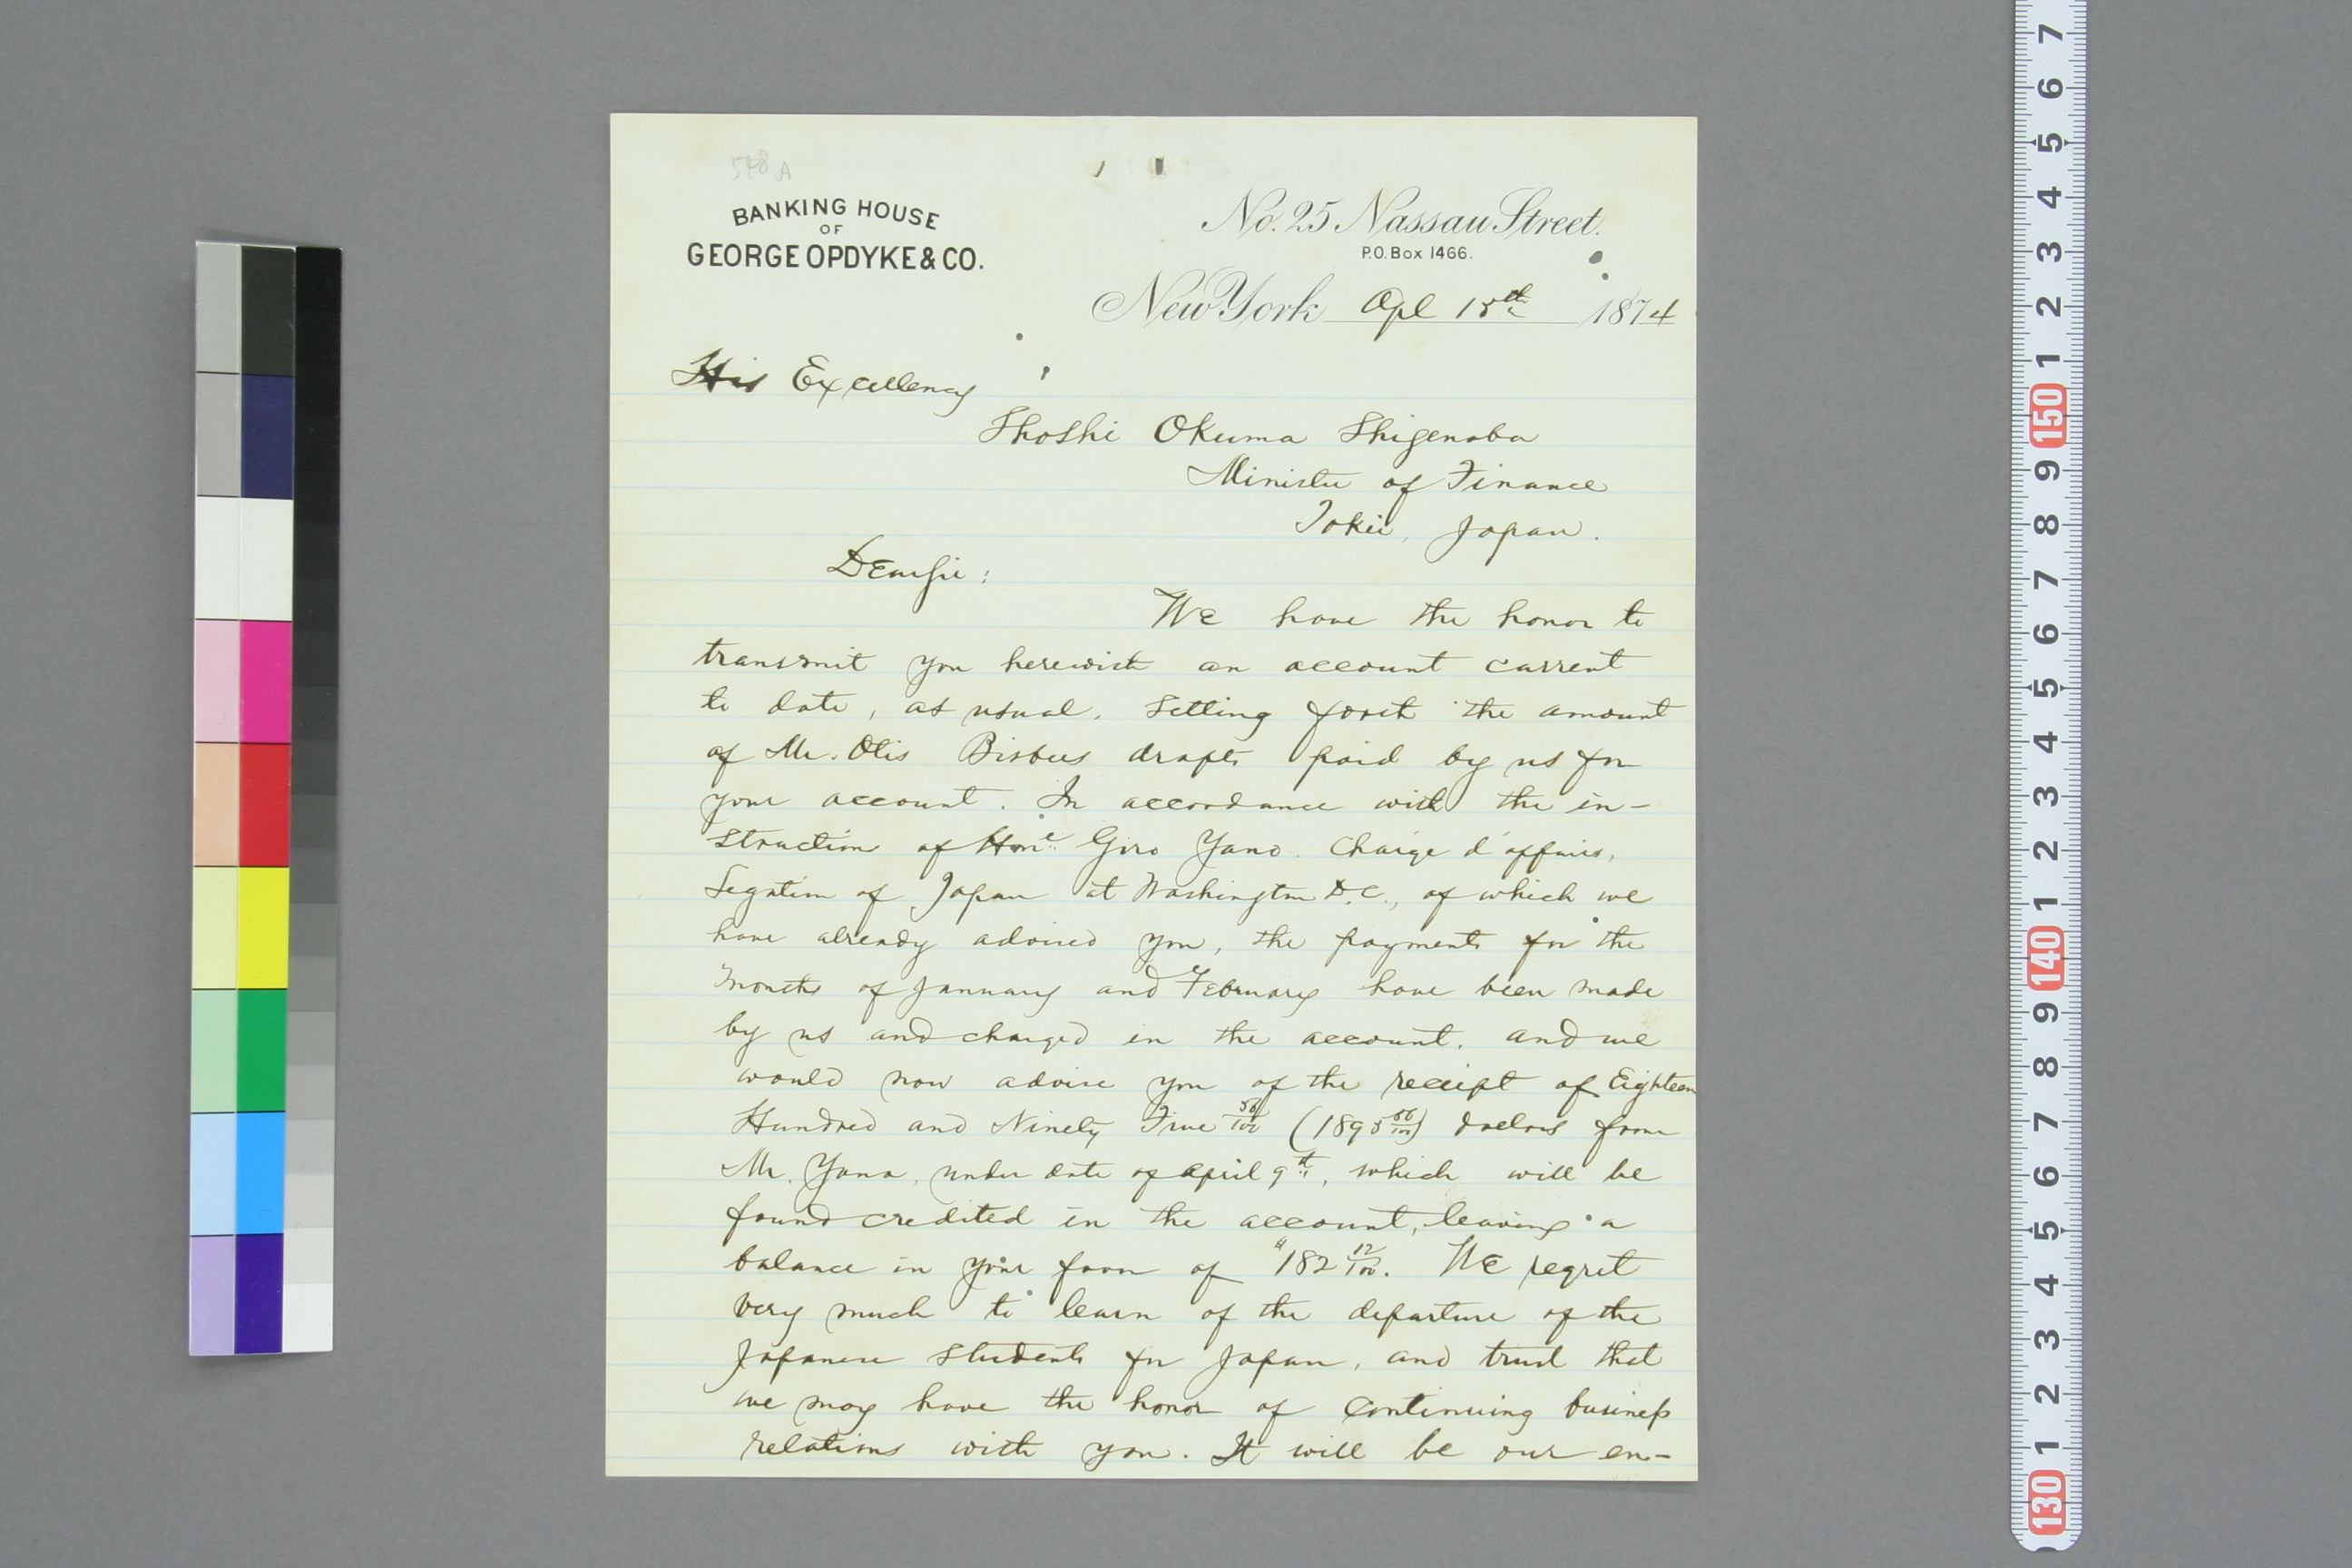 548 A
BANKING HOUSE
OF
GEORGE OPDYKE & CO.
No. 25 Nassau Street.
P.O. Box 1466.
New York Apl 15th 1874
His Excellency
Shoshi Okuma Shigenoba
Minister of Finance
Tokei, Japan.
Dear Sir:
We have the honor to
transmit you herewith an account current
to date, as usual, setting forth the amount
of Mr. Otis Bisbees drafts paid by us for
your account. In accordance with the in-
struction of Honl. Giro Yano. Chargé d'affairs,
Legation of Japan at Washington D.C., of which we
have already advised you, the payments for the
months of January and February have been made
by us and charged in the account. and we
would now advise you of the receipt of Eighteen
Hundred and Ninety Five 56/100 (1895 56/100) dollars from
Mr. Yano, under date of April 9th, which will be
found credited in the account, leaving a
balance in your favor of "182 12/100. We regret
very much to learn of the departure of the
Japanese students for Japan, and trust that
we may have the honor of continuing business
relations with you. It will be our en-
7
6
5
4
3
2
1
150
9
8
7
6
5
4
3
2
1
140
9
8
7
6
5
4
3
2
1
130